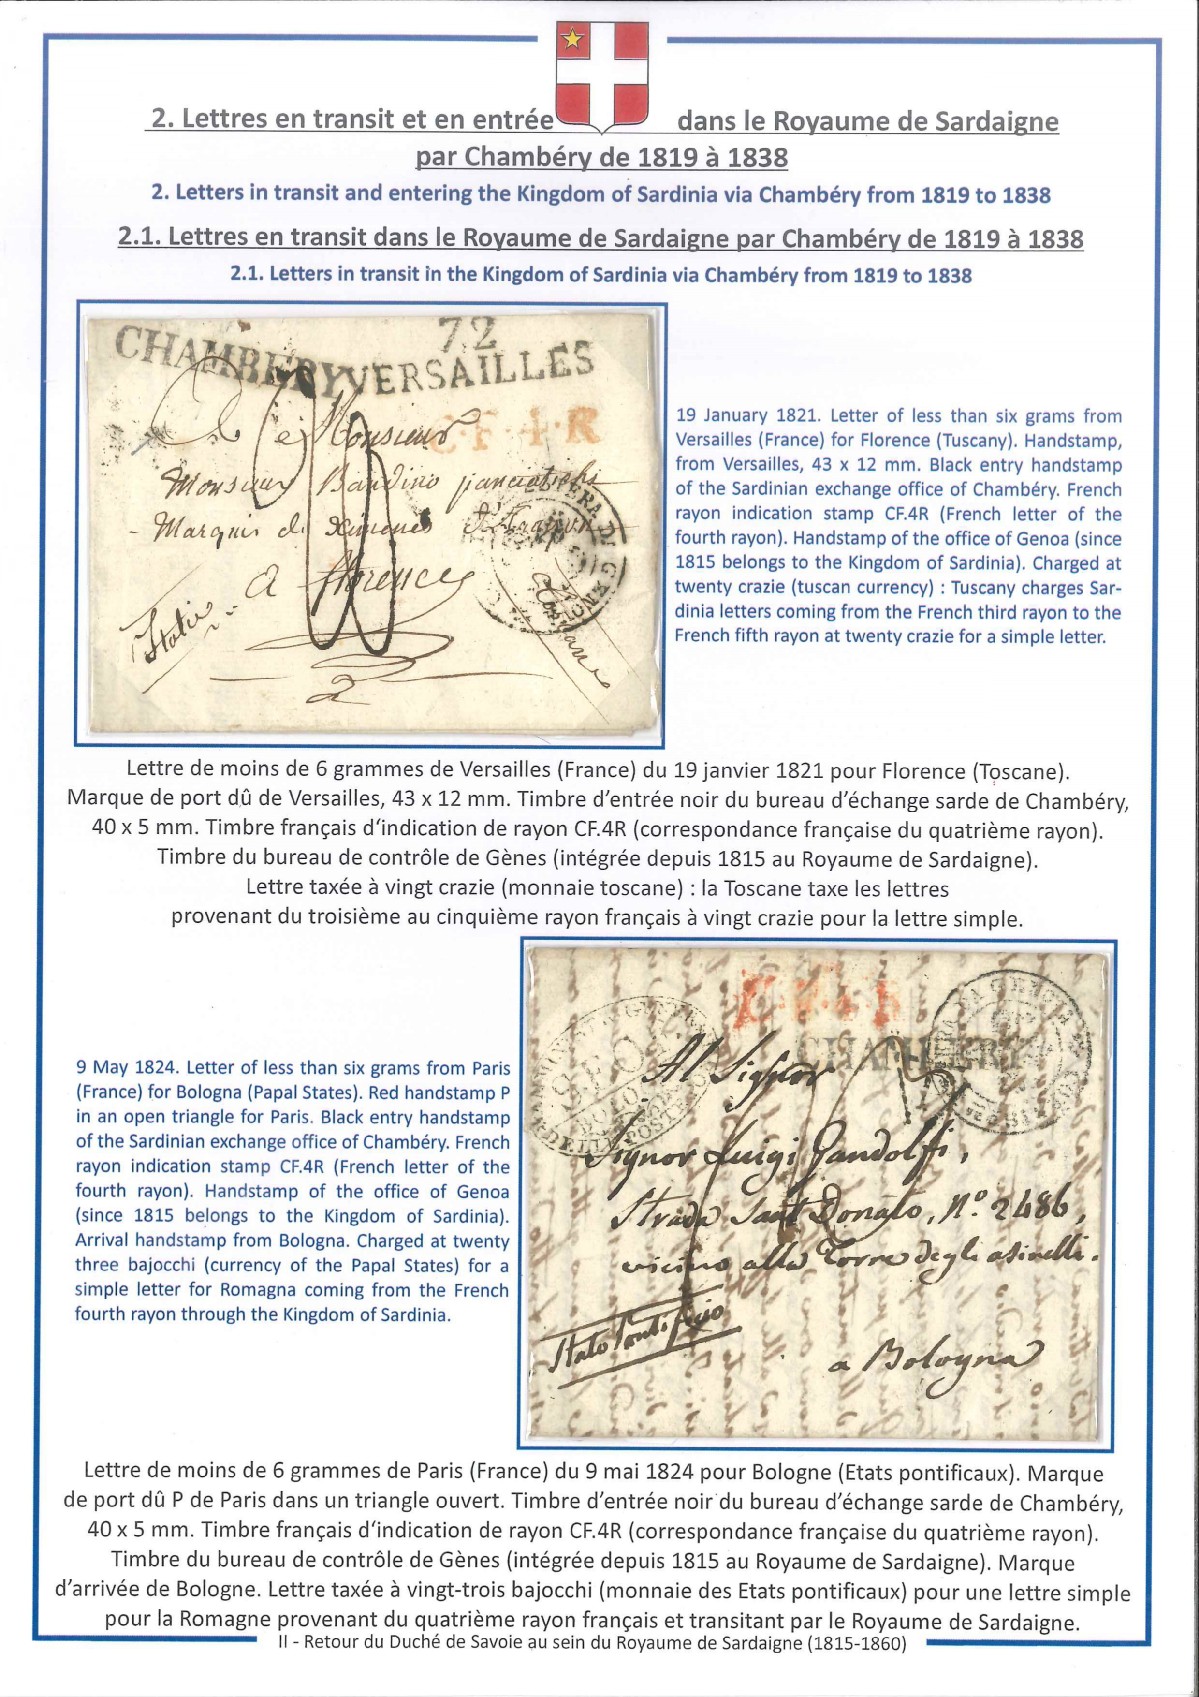 2. Lettres en transit et en entrée dans le Royaume de Sardaigne
par Chambéry de 1819 à 1838
2. Letters in transit and entering the Kingdom of Sardinia via Chambéry from 1819 to 1838
2.1. Lettres en transit dans le Royaume de Sardaigne par Chambéry de 1819 à 1838
2.1. Letters in transit in the Kingdom of Sardinia via Chambéry from 1819 to 1838
72
CHAMBERY VERSAILLES
C.F.4.R
Monsieur
Monsieur Bandino panciatichi
Marquis de Ximenes d'Aragon
a florence
Italie
Toscane
2
19 January 1821. Letter of less than six grams from
Versailles (France) for Florence (Tuscany). Handstamp,
from Versailles, 43 x 12 mm. Black entry handstamp
of the Sardinian exchange office of Chambéry. French
rayon indication stamp CF.4R (French letter of the
fourth rayon). Handstamp of the office of Genoa (since
1815 belongs to the Kingdom of Sardinia). Charged at
twenty crazie (tuscan currency) : Tuscany charges Sar-
dinia letters coming from the French third rayon to the
French fifth rayon at twenty crazie for a simple letter.
Lettre de moins de 6 grammes de Versailles (France) du 19 janvier 1821 pour Florence (Toscane).
Marque de port dû de Versailles, 43 x 12 mm. Timbre d'entrée noir du bureau d'échange sarde de Chambéry,
40 x 5 mm. Timbre français d'indication de rayon CF.4R (correspondance française du quatrième rayon).
Timbre du bureau de contrôle de Gènes (intégrée depuis 1815 au Royaume de Sardaigne).
Lettre taxée à vingt crazie (monnaie toscane) : la Toscane taxe les lettres
provenant du troisième au cinquième rayon français à vingt crazie pour la lettre simple.
9 May 1824. Letter of less than six grams from Paris
(France) for Bologna (Papal States). Red handstamp P
in an open triangle for Paris. Black entry handstamp
of the Sardinian exchange office of Chambéry. French
rayon indication stamp CF.4R (French letter of the
fourth rayon). Handstamp of the office of Genoa
(since 1815 belongs to the Kingdom of Sardinia).
Arrival handstamp from Bologna. Charged at twenty
three bajocchi (currency of the Papal States) for a
simple letter for Romagna coming from the French
fourth rayon through the Kingdom of Sardinia.
CHAMBERY
Al Signor
Signor Luigi Gandolfi,
Strada Sant Donato, N.o 2486,
vicino alla Torre degli asinelli.
Stato Pontificio
a Bologna
Lettre de moins de 6 grammes de Paris (France) du 9 mai 1824 pour Bologne (Etats pontificaux). Marque
de port dû P de Paris dans un triangle ouvert. Timbre d'entrée noir du bureau d'échange sarde de Chambéry,
40 x 5 mm. Timbre français d'indication de rayon CF.4R (correspondance française du quatrième rayon).
Timbre du bureau de contrôle de Gènes (intégrée depuis 1815 au Royaume de Sardaigne). Marque
d'arrivée de Bologne. Lettre taxée à vingt-trois bajocchi (monnaie des Etats pontificaux) pour une lettre simple
pour la Romagne provenant du quatrième rayon français et transitant par le Royaume de Sardaigne.
II - Retour du Duché de Savoie au sein du Royaume de Sardaigne (1815-1860)